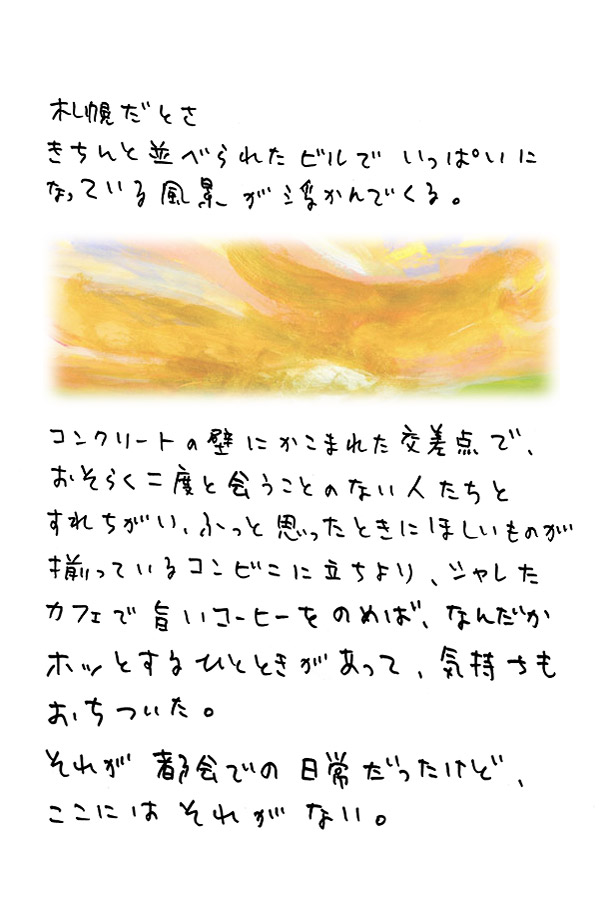 札幌だとさ
きちんと並べられたビルでいっぱいに
なっている風景が浮かんでくる。
コンクリートの壁にかこまれた交差点で、
おそらく二度と会うことのない人たちと
すれちがい、ふっと思ったときにほしいものが
揃っているコンビニに立ちより、シャレた
カフェで旨いコーヒーをのめば、なんだか
ホッとするひとときがあって、気持ちも
おちついた。
それが都会での日常だったけど、
ここにはそれがない。